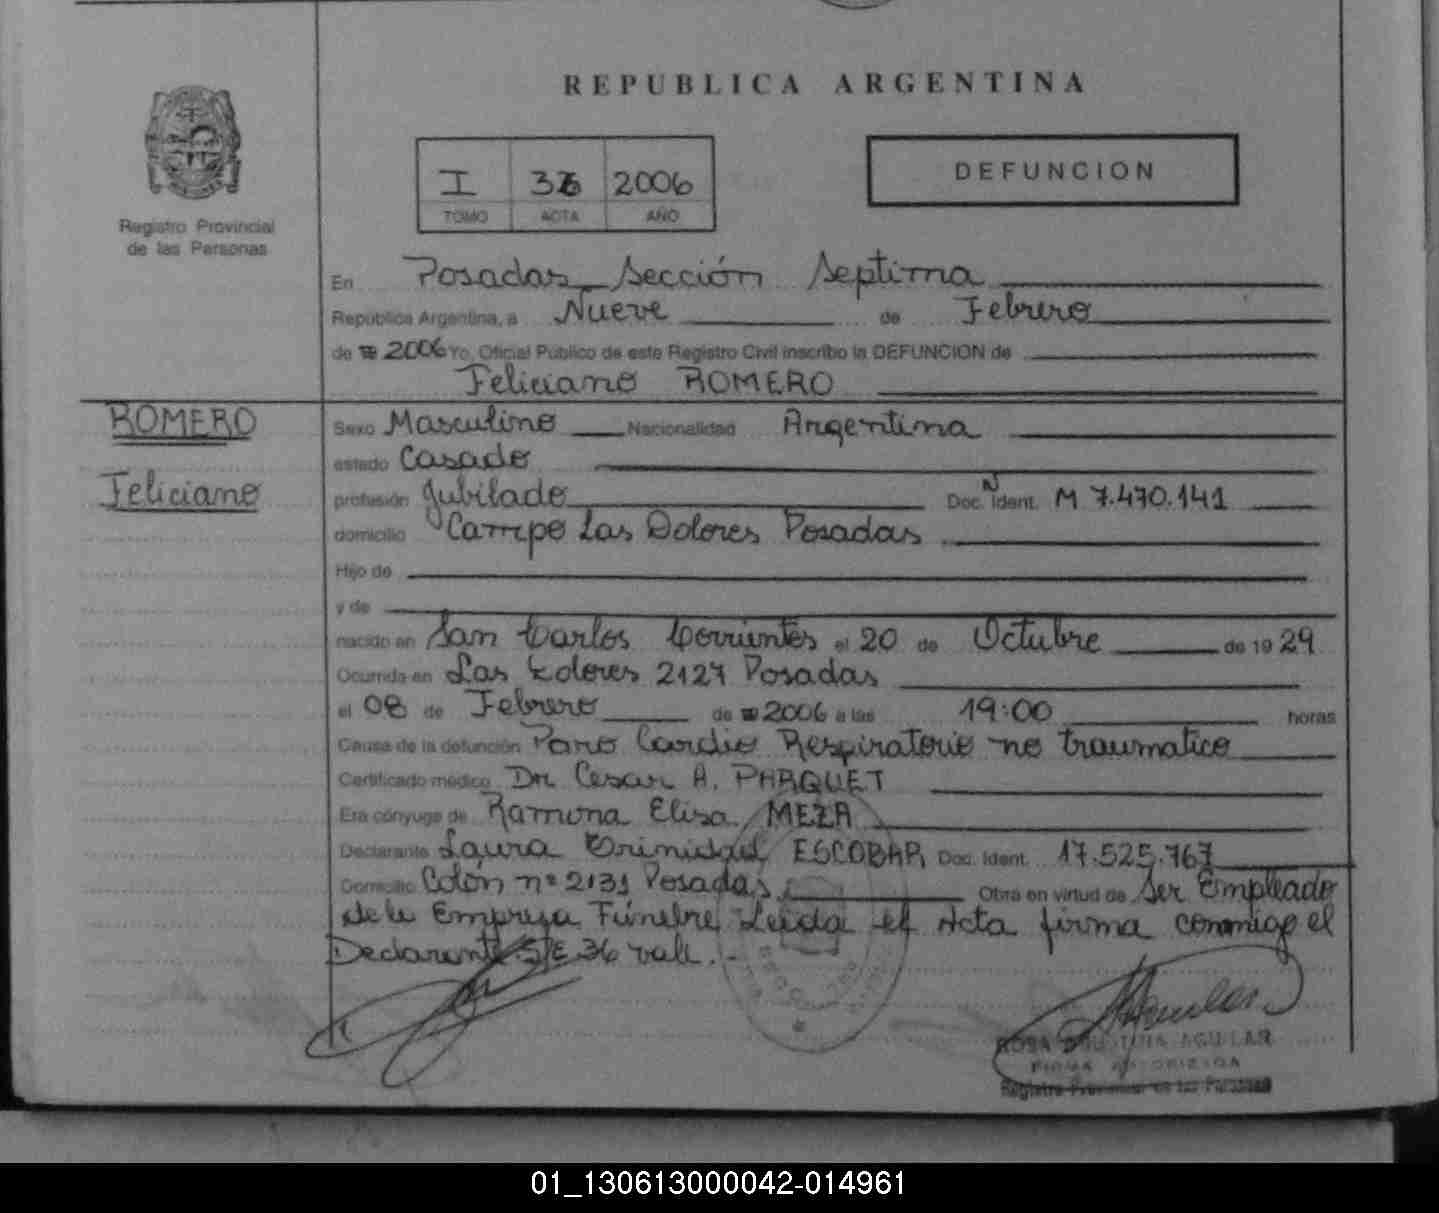 REPUBLICA ARGENTINA
I 36 2006
TOMO ACTA AÑO
DEFUNCION
Registro Provincial
de las Personas
En Posadas Sección Septima
República Argentina, a Nueve de Febrero
de 2006 Yo, Oficial Público de este Registro Civil inscribo la DEFUNCION de
Feliciano ROMERO
ROMERO
Feliciano
Sexo Masculino Nacionalidad Argentina
estado Casado
profesión Jubilado Doc. Ident. M 7.470.141
domicilio Campo Las Dolores Posadas
Hijo de
y de
nacido en San Carlos Corrientes el 20 de Octubre de 1929
Ocurrida en Las Dolores 2127 Posadas
el 08 de Febrero de 2006 a las 19:00 horas
Causa de la defunción Paro Cardio Respiratorio no traumatico
Certificado médico Dr. Cesar A. PARQUET
Era cónyuge de Ramona Elisa MEZA
Declarante Laura Trinidad ESCOBAR Doc. Ident. 17.525.767
Domicilio Colón nº 2131 Posadas Obra en virtud de Ser Empleado
de la Empresa Fúnebre Leida el Acta firma conmigo el
Declarante S/E 36 vale.-
AGUILAR
FIRMA AUTORIZADA
Registro Provincial de las Personas
01_130613000042-014961